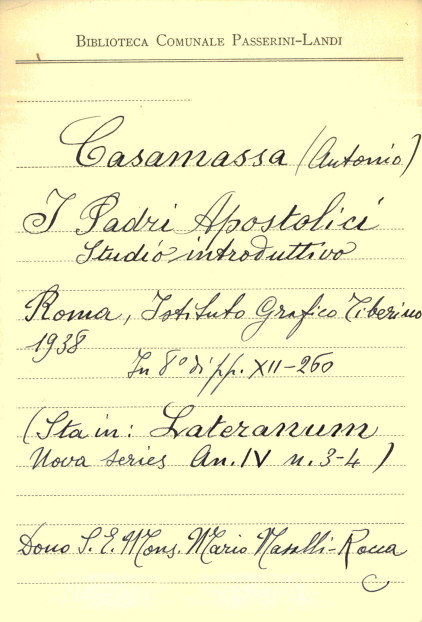 BIBLIOTECA COMUNALE PASSERINI-LANDI
Casamassa (Antonio)
I Padri Apostolici
Studio introduttivo
Roma, Istituto Grafico Tiberino
1938
In 8° di pp. XII-260
(Sta in: Lateranum
Nova series An. IV n. 3-4)
Dono S. E. Mons. Mario Nasalli-Rocca